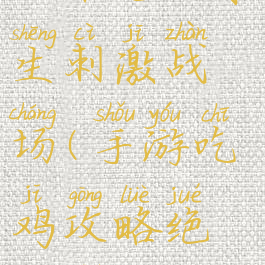 shēng cì jī zhàn
生刺激战
chǎng shǒu yóu chī
场(手游吃
jī gōng lüè jué
鸡攻略绝